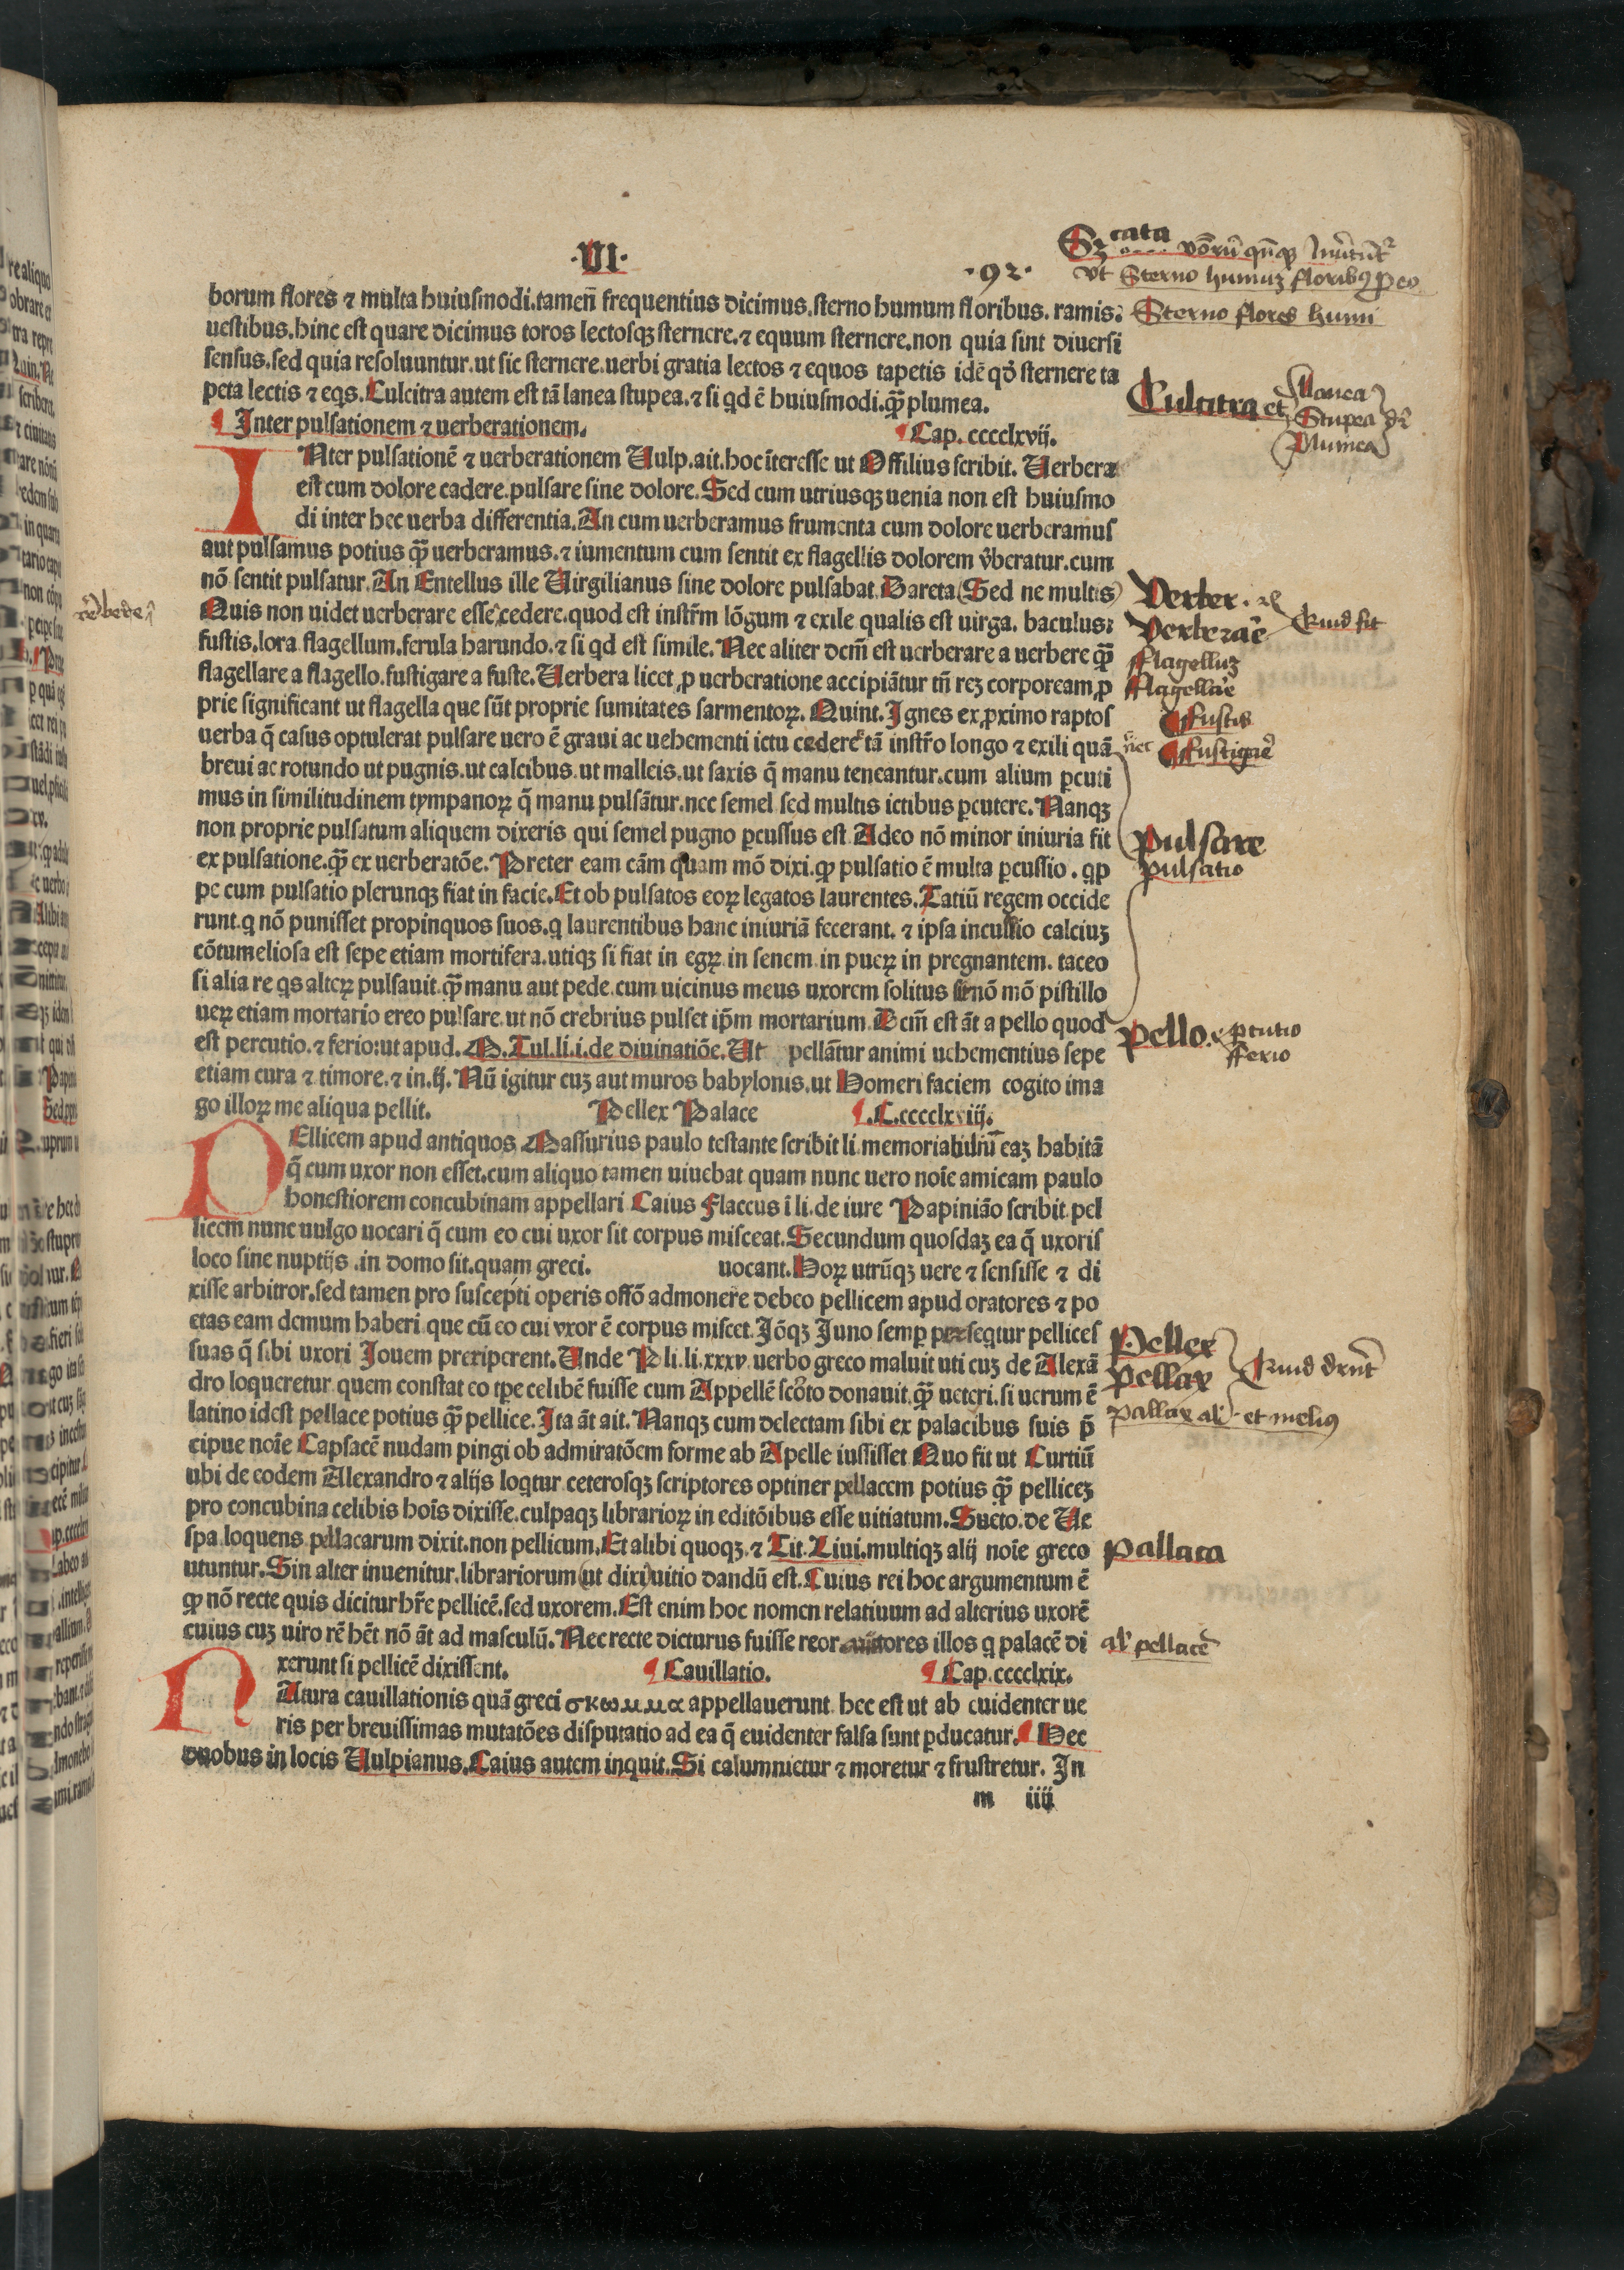 ·VI·
·92·
borum flores ⁊ multa huiusmodi.tamen̄ frequentius dicimus.sterno humum floribus. ramis:
uestibus.hinc est quare dicimus toros lectosqꝫ sternere.⁊ equum sternere.non quia sint diuersi
sensus.sed quia resoluuntur.ut sic sternere.uerbi gratia lectos ⁊ equos tapetis idē qđ sternere ta
peta lectis ⁊ eqs.Culcitra autem est tā lanea stupea.⁊ si qd ē huiusmodi.q̄ꝫ plumea.
¶ Inter pulsationem ⁊ uerberationem.
¶ Cap. cccclxvij.
INter pulsationē ⁊ uerberationem Vulp.ait.hoc īteresse ut Offilius scribit. Uerbera
est cum dolore cadere.pulsare sine dolore.Sed cum utriusqꝫ uenia non est huiusmo
di inter hec uerba differentia.An cum uerberamus frumenta cum dolore uerberamus
aut pulsamus potius q̄ꝫ uerberamus.⁊ iumentum cum sentit ex flagellis dolorem v̄beratur.cum
nō sentit pulsatur.An Entellus ille Virgilianus sine dolore pulsabat Dareta (Sed ne multis)
Quis non uidet uerberare esse cedere.quod est instr̄m lōgum ⁊ exile qualis est uirga. baculus:
fustis.lora flagellum.ferula harundo.⁊ si qd est simile. Nec aliter dcm̄ est uerberare a uerbere q̄ꝫ
flagellare a flagello.fustigare a fuste.Uerbera licet ꝓ uerberatione accipiātur tn̄ reꝫ corpoream ꝓ
prie significant ut flagella que sūt proprie sumitates sarmentoꝝ. Quint. Ignes ex ꝓximo raptos
uerba q̄ casus optulerat pulsare uero ē graui ac uehementi ictu cedere tā instr̄o longo ⁊ exili quā
breui ac rotundo ut pugnis.ut calcibus.ut malleis.ut saxis q̄ manu teneantur.cum alium ꝑcuti
mus in similitudinem tympanoꝝ q̄ manu pulsātur.nec semel sed multis ictibus ꝑcutere.Nanqꝫ
non proprie pulsatum aliquem dixeris qui semel pugno ꝑcussus est Adeo nō minor iniuria fit
ex pulsatione.q̄ꝫ ex uerberatōe. Preter eam cām quam mō dixi.ꝙ pulsatio ē multa ꝑcussio . qp
pe cum pulsatio plerunqꝫ fiat in facie.Et ob pulsatos eoꝝ legatos laurentes.Tatiū regem occide
runt.q nō punisset propinquos suos.q laurentibus hanc iniuriā fecerant. ⁊ ipsa incussio calciuꝫ
cōtumeliosa est sepe etiam mortifera.utiqꝫ si fiat in egꝝ in senem in pueꝝ in pregnantem. taceo
si alia re qs alteꝝ pulsauit.q̄ꝫ manu aut pede.cum uicinus meus uxorem solitus sit nō mō pistillo
ueꝝ etiam mortario ereo pulsare.ut nō crebrius pulset ip̄m mortarium.Dcm̄ est āt a pello quod
est percutio.⁊ ferio:ut apud.M.Tul.li.i.de diuinatiōe.Ut pellātur animi uehementius sepe
etiam cura ⁊ timore.⁊ in.ij.Nū igitur cuꝫ aut muros babylonis.ut Homeri faciem cogito ima
go illoꝝ me aliqua pellit.
Pellex Palace
¶.C.cccclxviij.
PEllicem apud antiquos Massurius paulo testante scribit li memorabiliū eaꝫ habitā
q̄ cum uxor non esset.cum aliquo tamen uiuebat quam nunc uero noīe amicam paulo
honestiorem concubinam appellari Caius Flaccus ī li.de iure Papiniāo scribit pel
licem nunc uulgo uocari q̄ cum eo cui uxor sit corpus misceat.Secundum quosdaꝫ ea q̄ uxoris
loco sine nuptijs .in domo sit.quam greci. uocant.Hoꝝ utrūqꝫ uere ⁊ sensisse ⁊ di
xisse arbitror.sed tamen pro suscepti operis offō admonere debeo pellicem apud oratores ⁊ po
etas eam demum haberi que cū eo cui vxor ē corpus miscet.Iōqꝫ Juno semꝑ persequtur pellices
suas q̄ sibi uxori Jouem preriperent.Unde Pli.li.xxxv.uerbo greco maluit uti cuꝫ de Alexā
dro loqueretur quem constat eo tꝑe celibē fuisse cum Appellē scōto donauit.q̄ꝫ ueteri.si uerum ē
latino idest pellace potius q̄ꝫ pellice.Ita āt ait. Nanqꝫ cum delectam sibi ex palacibus suis p̄
cipue noīe Capsacē nudam pingi ob admiratōem forme ab Apelle iussisset Quo fit ut Curtiū
ubi de eodem Alexandro ⁊ alijs loqtur ceterosqꝫ scriptores optiner pellacem potius q̄ꝫ pelliceꝫ
pro concubina celibis hoīs dixisse.culpaqꝫ librarioꝝ in editōibus esse uitiatum.Sueto.de Ue
spa.loquens pellacarum dixit.non pellicum.Et alibi quoqꝫ.⁊ Tit.Liui.multiqꝫ alij noīe greco
utuntur.Sin alter inuenitur.librariorum (ut dixi) uitio dandū est.Cuius rei hoc argumentum ē
ꝙ nō recte quis dicitur hr̄e pellicē.sed uxorem.Est enim hoc nomen relatiuum ad alterius uxorē
cuius cuꝫ uiro rē hēt nō āt ad masculū. Nec recte dicturus fuisse reor autores illos q palacē di
xerunt si pellicē dixissent.
¶ Cauillatio.
¶ Cap.cccclxix.
NAtura cauillationis quā greci σκωμμα appellauerunt hec est ut ab euidenter ue
ris per breuissimas mutatōes disputatio ad ea q̄ euidenter falsa sunt ꝑducatur.¶ Hec
duobus in locis Vulpianus.Caius autem inquit.Si calumnietur ⁊ moretur ⁊ frustretur. In
m iiij
vt Sterno humuꝫ floribus
Sterno flores humi
Culcitra et
Lanea
Stupea
Plumea
Verber
Verberare
flagelluꝫ
flagellare
¶ fustis
¶ fustigare
Pulsare
pulsatio
Pello
ꝑcutio
fferio
Pellex
Pellax
pallax al' et melius
Pallaca
al' pellacē